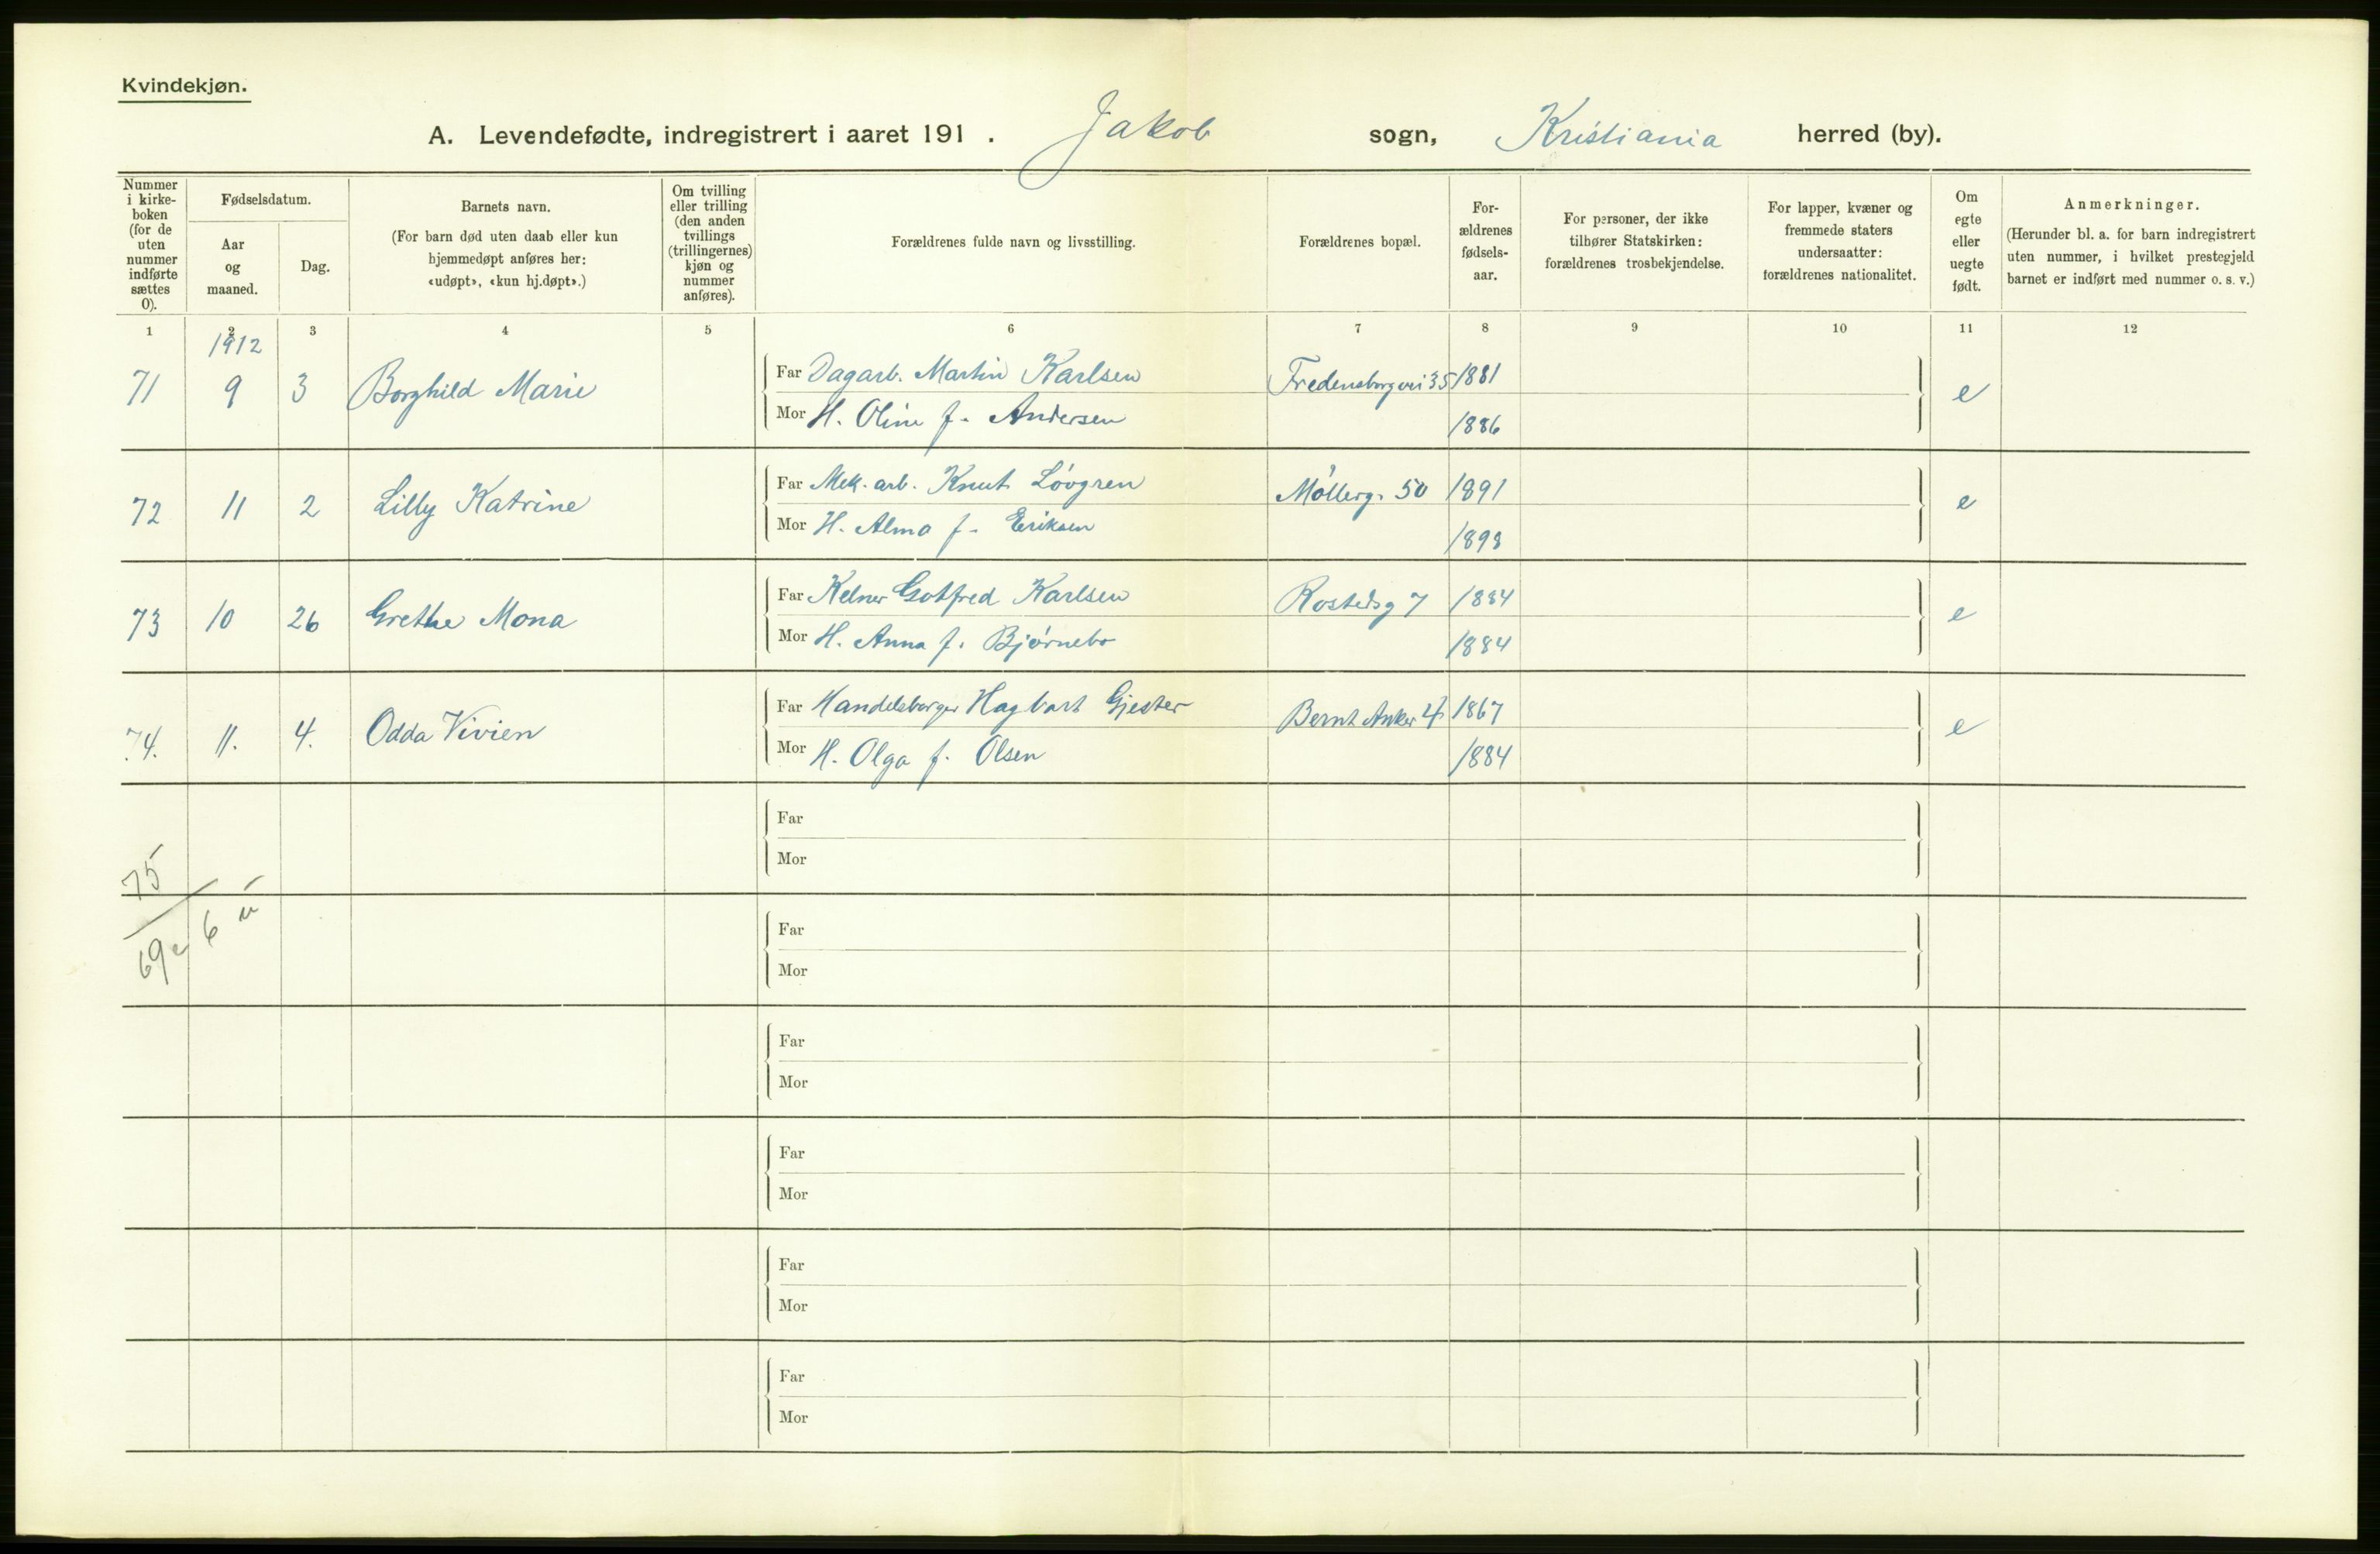 Kvindekjøn.
A. Levendefødte, indregistrert i aaret 191 . Jakob sogn, Kristiania herred (by).
Nummer i kirke-boken (for de uten nummer indførte sættes 0).
Fødselsdatum.
Aar og maaned.
Dag.
Barnets navn.
(For barn død uten daab eller kun hjemmedøpt anføres her: «udøpt», «kun hj.døpt».)
Om tvilling eller trilling (den anden tvillings (trillingernes) kjøn og nummer anføres).
Forældrenes fulde navn og livsstilling.
Forældrenes bopæl.
For-ældrenes fødsels-aar.
For personer, der ikke tilhører Statskirken: forældrenes trosbekjendelse.
For lapper, kvæner og fremmede staters undersaatter: forældrenes nationalitet.
Om egte eller uegte født.
Anmerkninger.
(Herunder bl. a. for barn indregistrert uten nummer, i hvilket prestegjeld barnet er indført med nummer o. s. v.)
1 2 3 4 5 6 7 8 9 10 11 12
1912
71 9 3 Borghild Marie Far Dagarb. Martin Karlsen Fredensborgvei 35 1881 e
Mor H. Oline f. Andersen 1886
72 11 2 Lilly Katrine Far Mek. arb. Knut Løvgren Møllerg. 50 1891 e
Mor H. Alma f. Eriksen 1898
73 10 26 Grethe Mona Far Kelner Gotfred Karlsen Rostedsg 7 1884 e
Mor H. Anna f. Bjørnebo 1884
74. 11. 4. Odda Vivien Far Handelsborger Hagbart Gjester Bernt Anker 4 1867 e
Mor H. Olga f. Olsen 1884
Far
Mor
75
69 e 6 u
Far
Mor
Far
Mor
Far
Mor
Far
Mor
Far
Mor